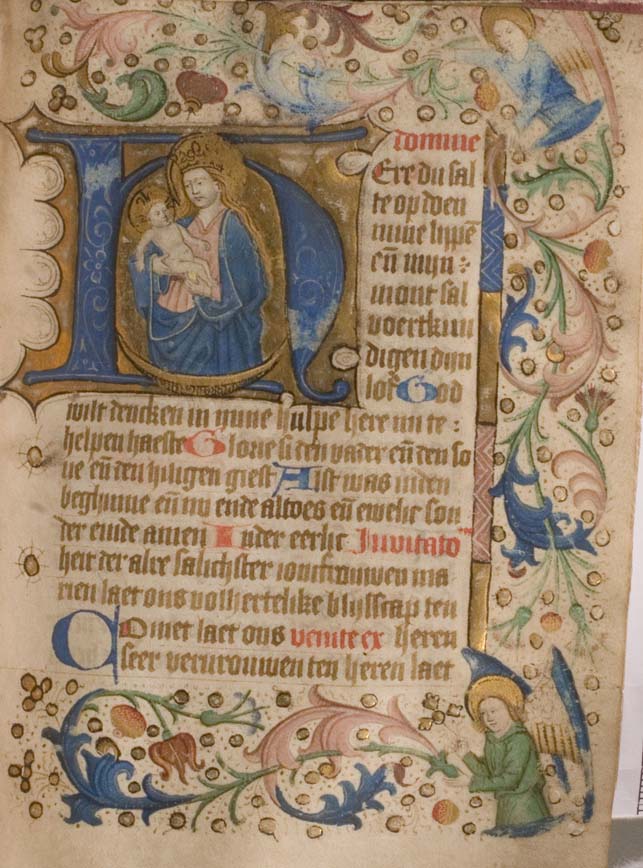 domine
H Ere du sal
te op doen
mine lippē
eñ mijn
mont sal
voertkun
digen dijn
lof God
wilt dencken in myne hulpe here mi te
helpen haeste Glorie si den vader eñ den so
ne eñ den hiligen giest Alst was inden
beghinne eñ nu ende altoes eñ ewelic son
der einde amen Inder eerlic Invitatoᵐ
heit der alre salichster ioncfrouwen ma
rien laet ons volhertelike blijsscap ten
Comet laet ons venite ex heren
seer vervrouwen ten heren laet